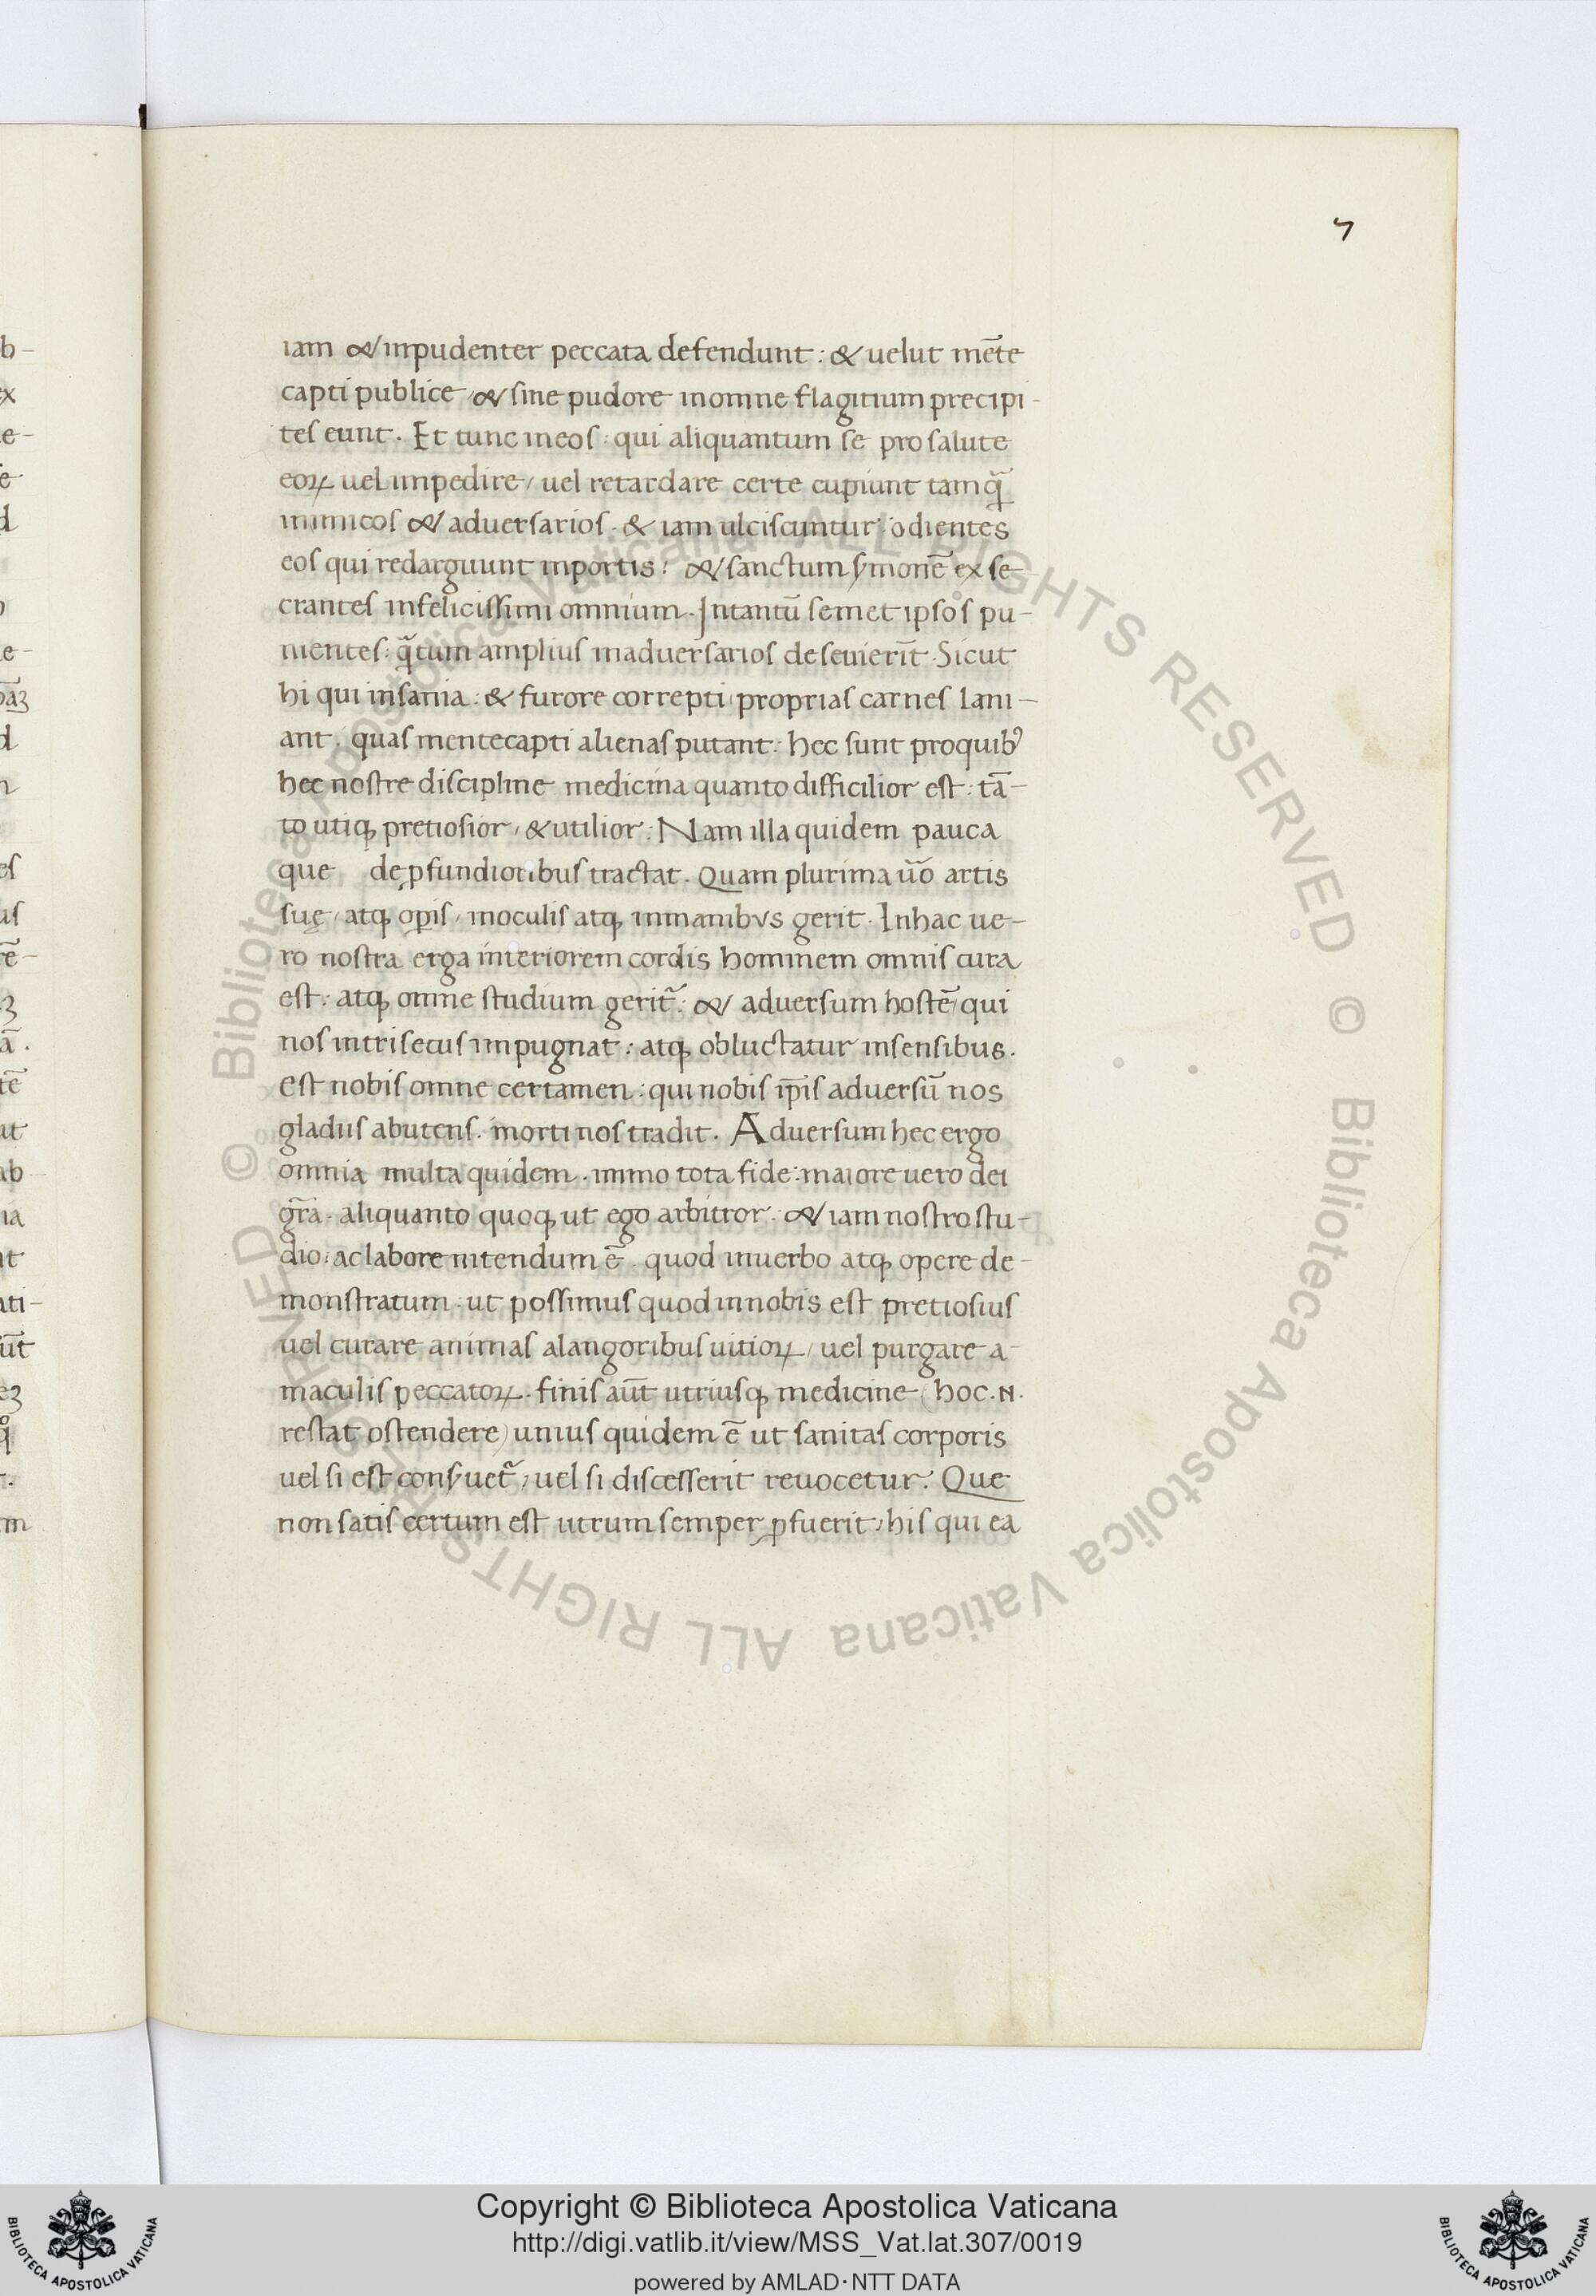 7
iam & inpudenter peccata defendunt : & uelut mēte
capti publice / & sine pudore inomne flagitium precipi-
tes eunt . Et tunc ineos : qui aliquantum se pro salute
eoꝝ uel impedire / uel retardare certe cupiunt tamq̃
inimicos & aduersarios . & iam ulciscuntur : odientes
eos qui redarguunt inportis : & sanctum symonē exse-
crantes infelicissimi omnium . Intantū semet ipsos pu-
nientes : q̃tum amplius inaduersarios deseuierīt . Sicut
hi qui insania : & furore correpti proprias carnes lani-
ant . quas mentecapti alienas putant : hec sunt proquibꝰ
hec nostre discipline medicina quanto difficilior est : tā-
to utiqꝫ pretiosior / & utilior : Nam illa quidem pauca
que de ꝓfundioribus tractat . Quam plurima ūo artis
suę / atqꝫ oꝑis / inoculis atqꝫ inmanibus gerit . Inhac ue-
ro nostra erga interiorem cordis hominem omnis cura
est : atqꝫ omne studium gerit᷑ : & aduersum hostē qui
nos intrisecus impugnat : atqꝫ obluctatur insensibus .
est nobis omne certamen : qui nobis ip̄is aduersū nos
gladiis abutens . morti nos tradit . Aduersum hec ergo
omnia multa quidem . immo tota fide : maiore uero dei
gr̄a . aliquanto quoqꝫ ut ego arbitror : & iam nostro stu-
dio : ac labore nitendum ē . quod inuerbo atqꝫ opere de-
monstratum . ut possimus quod innobis est pretiosius
uel curare animas alangoribus uitioꝝ / uel purgare a
maculis peccatoꝝ . finis aūt utriusqꝫ medicine ( hoc . N .
restat ostendere ) unius quidem ē ut sanitas corporis
uel si est consyuet᷑ / uel si discesserit reuocetur . Que
non satis certum est utrum semper ꝓfuerit / his qui ea
Copyright © Biblioteca Apostolica Vaticana
http://digi.vatlib.it/view/MSS_Vat.lat.307/0019
powered by AMLAD·NTT DATA
BIBLIOTECA APOSTOLICA VATICANA
BIBLIOTECA APOSTOLICA VATICANA
© Biblioteca Apostolica Vaticana ALL RIGHTS RESERVED © Biblioteca Apostolica Vaticana ALL RIGHTS RESERVED